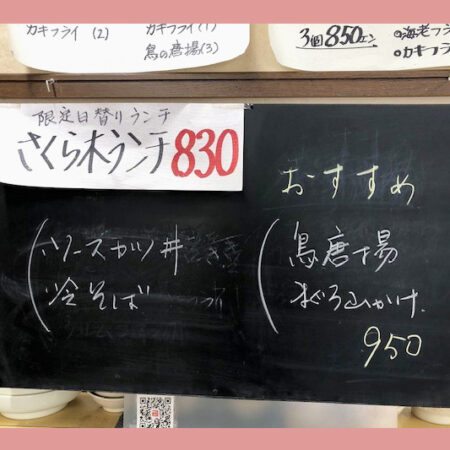 カキフライ (2)
カキフライ(1)
鳥の唐揚(3)
3個850エン
○海老フラ
○カキフラ
限定日替りランチ
さくら木ランチ830
ソースカツ丼
冷そば
おすすめ
鳥唐揚
まぐろ山かけ
950